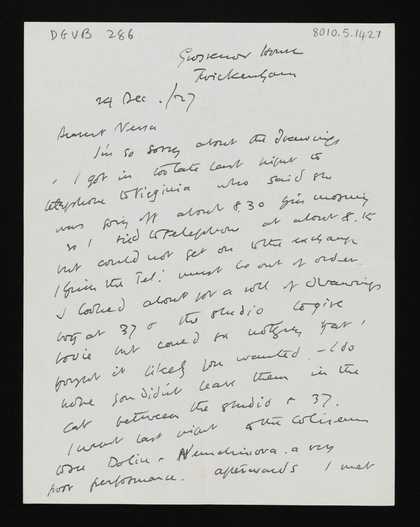 DGVB 286
8010.5.1427
Grosvenor House
Twickenham
24 Dec. /27
Dearest Nessa
I'm so sorry about the drawings
, I got in too late last night to
telephone to Virginia who said she
was going off about 8.30 this morning
so I tried to telephone at about 8.15
but could not get on to the exchange
I think the Tel: must be out of order
I looked about for a roll of drawings
both at 37 & the studio to give
Louie but could see nothing that I
thought it likely you wanted. - I do
hope you didn't leave them in the
cab between the studio & 37.
I went last night to the Coliseum
to see Dolin & Nemchinova. a very
poor performance. afterwards I met